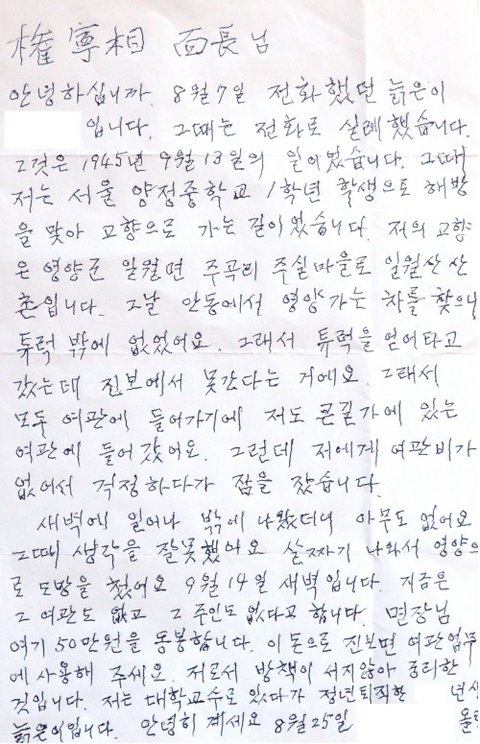 權寧相 面長님
안녕하십니까. 8월7일 전화했던 늙은이
입니다. 그때는 전화로 실례했습니다.
그것은 1945년 9월 13일의 일이었습니다. 그때
저는 서울 양정중학교 1학년 학생으로 해방
을 맞아 고향으로 가는 길이었습니다. 저의 고향
은 영양군 일월면 주곡리 주실마을로 일월산 산
촌입니다. 그날 안동에서 영양가는 차를 찾으니
튜럭 밖에 없었어요. 그래서 튜럭을 얻어타고
갔는데 진보에서 못간다는 거에요. 그래서
모두 여관에 들어가기에 저도 큰길가에 있는
여관에 들어 갔어요. 그런데 저에게 여관비가
없어서 걱정하다가 잠을 잤습니다.
새벽에 일어나 밖에 나왔더니 아무도 없어요
그때 생각을 잘못했어요 살짜기 나와서 영양으
로 도망을 쳤어요 9월 14일 새벽입니다. 지금은
그 여관도 없고 그 주인도 없다고 합니다. 면장님
여기 50만원을 동봉합니다. 이 돈으로 진보면 여관업무
에 사용해 주세요. 저로서 방책이 서지않아 궁리한
것입니다. 저는 대학교수로 있다가 정년퇴직한 년생
늙은이입니다. 안녕히 계세요 8월25일 올림